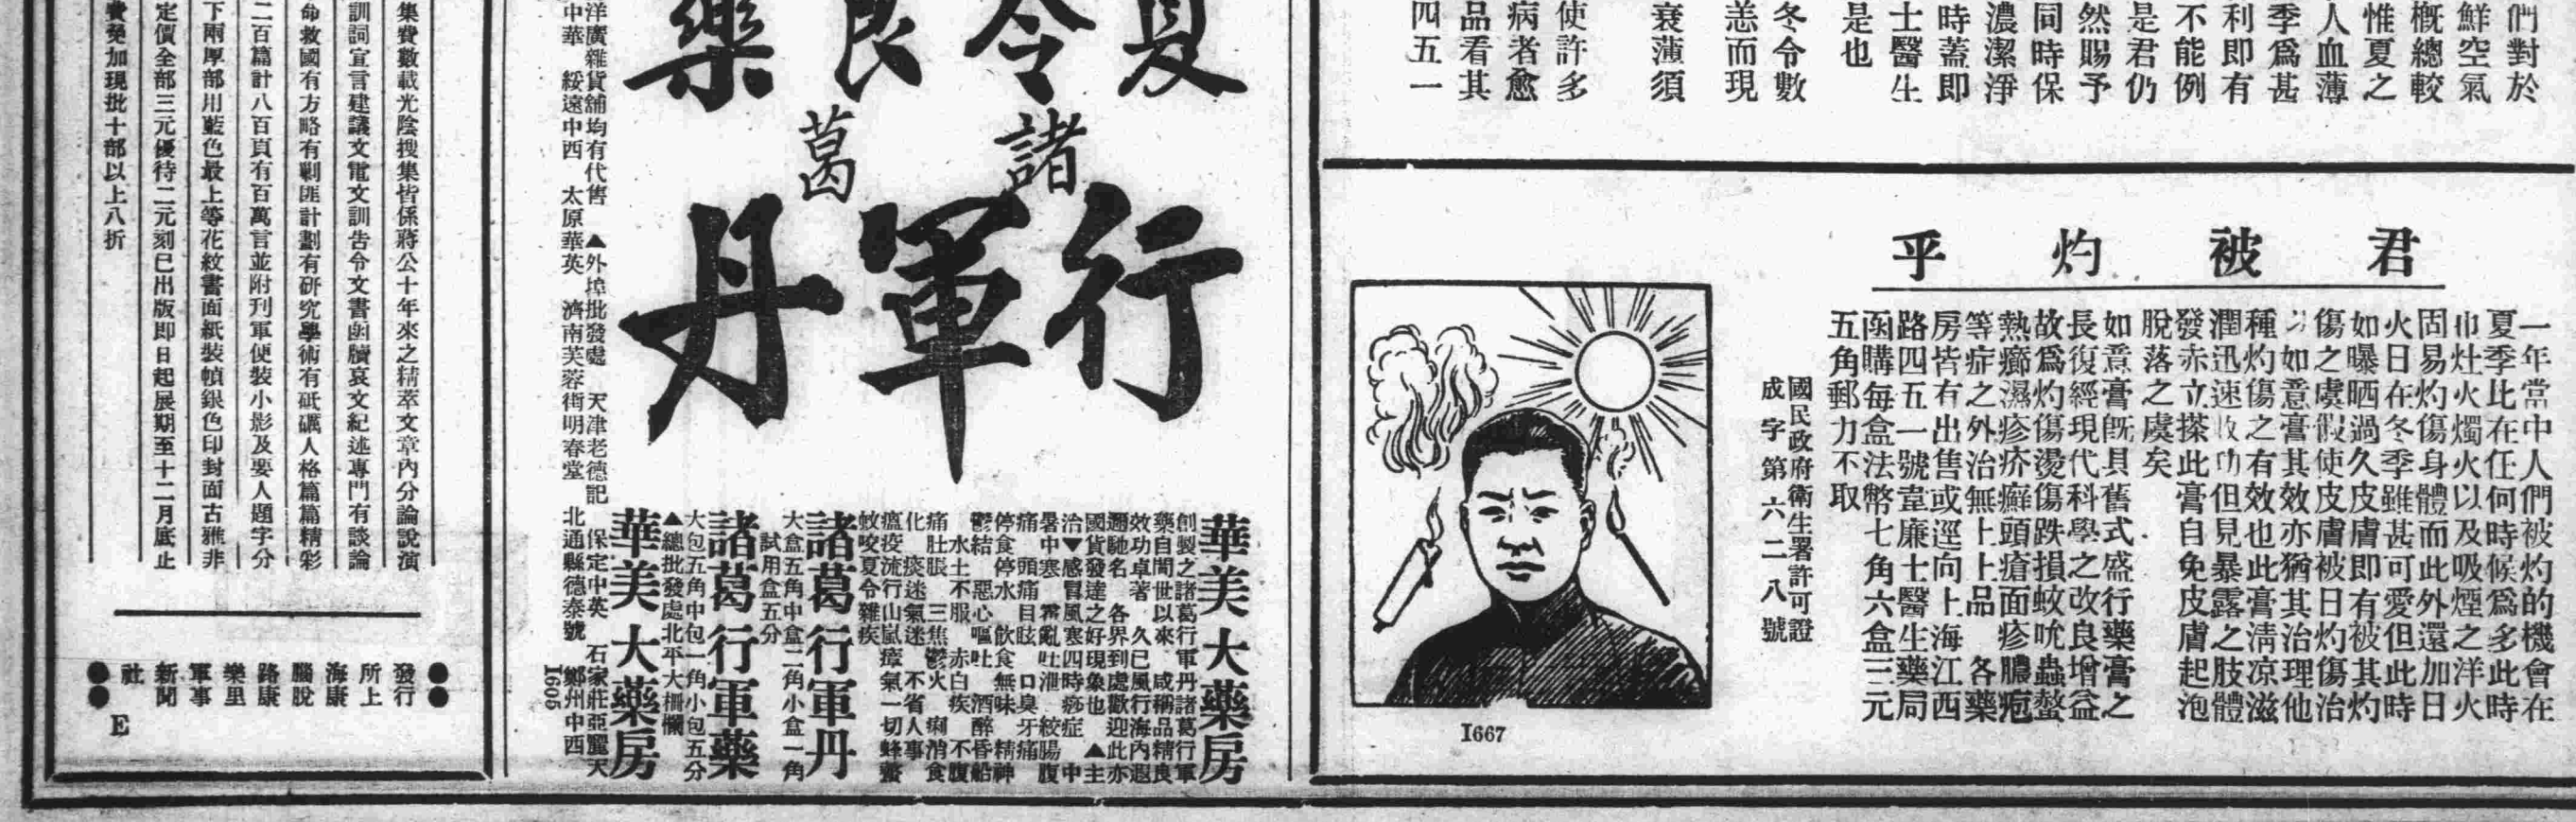 們對於
鮮空氣
概總較
惟夏之
人血薄
季爲甚
利即有
不能例
是君仍
然賜予
同時保
濃潔淨
時蓋即
士醫生
是也
冬令數
恙而現
衰薄須
使許多
病者愈
品看其
四五一
君被灼乎
一年當中人們被灼的機會在
夏季此在任何時候爲多此時
灶火燭火以及吸煙之洋火
固易灼傷身體而此外還加日
火日在冬季雖甚可愛但此時
如曝晒過久皮膚即有被其灼
傷之虞假使皮膚被日灼傷治
如意膏其效亦猶其治理他
種灼傷之有效也此膏淸凉滋
潤迅速收功但見暴露之肢體
發赤立搽此膏自免皮膚起泡
脫落之虞矣
如意膏旣具舊式盛行藥膏之
長復經現代科學之改良增益
故爲灼傷燙傷跌損蚊吮蟲螫
熱癤濕疹疥癬頭瘡面疹膿疱
等症之外治無上上品 各藥
房皆有出售或逕向上海江西
路四五一號韋廉士醫生藥局
函購每盒法幣七角六盒三元
五角郵力不取
國民政府衛生署許可證
成字第六二八號
1667
夏令良藥
諸葛
行軍丹
華美大藥房
創製之諸葛行軍丹諸葛行軍
藥自聞世以來 咸稱品精良
效功卓著 久已風行海內遐
邇馳名 各界到處歡迎此亦
國貨發達之好現象也 ▲主
治▼感冒風寒四時痧症 中
暑中寒 霍亂吐泄 絞腸腹
痛 頭痛目眩 口臭牙痛
停食停水 飲食無味 精神
鬱結 惡心嘔吐 酒醉昏船
水土不服 赤白痢疾 不腹
痛肚脹 三焦鬱火 痢消食
化 痰迷氣迷 不省人事
瘟疫流行山嵐瘴氣一切蜂蠆
蚊咬夏令雜疾
諸葛行軍丹
大盒五角中盒二角小盒一角
試用盒五分
諸葛行軍藥
大包五角中包一角小包五分
▲總批發處北平大柵欄
華美大藥房
洋廣雜貨舖均有代售 ▲外埠批發處 天津老德記 保定中英 石家莊亞麗天
中華 綏遠中西 太原華英 濟南芙蓉街明春堂 北通縣德泰號 鄭州中西
1605
集費數載光陰搜集皆係蔣公十年來之精萃文章內分論說演
訓詞宣言建議文電文訓告令文書函牘哀文紀述專門有談論
命救國有方略有剿匪計劃有研究學術有砥礪人格篇篇精彩
二百篇計八百頁有百萬言並附刊軍便裝小影及要人題字分
下兩厚部用藍色最上等花紋書面紙裝幀銀色印封面古雅非
定價全部三元優待二元刻已出版即日起展期至十二月底止
費免加現批十部以上八折
發行
所上
海康
腦脫
路康
樂里
軍事
新聞
社
E